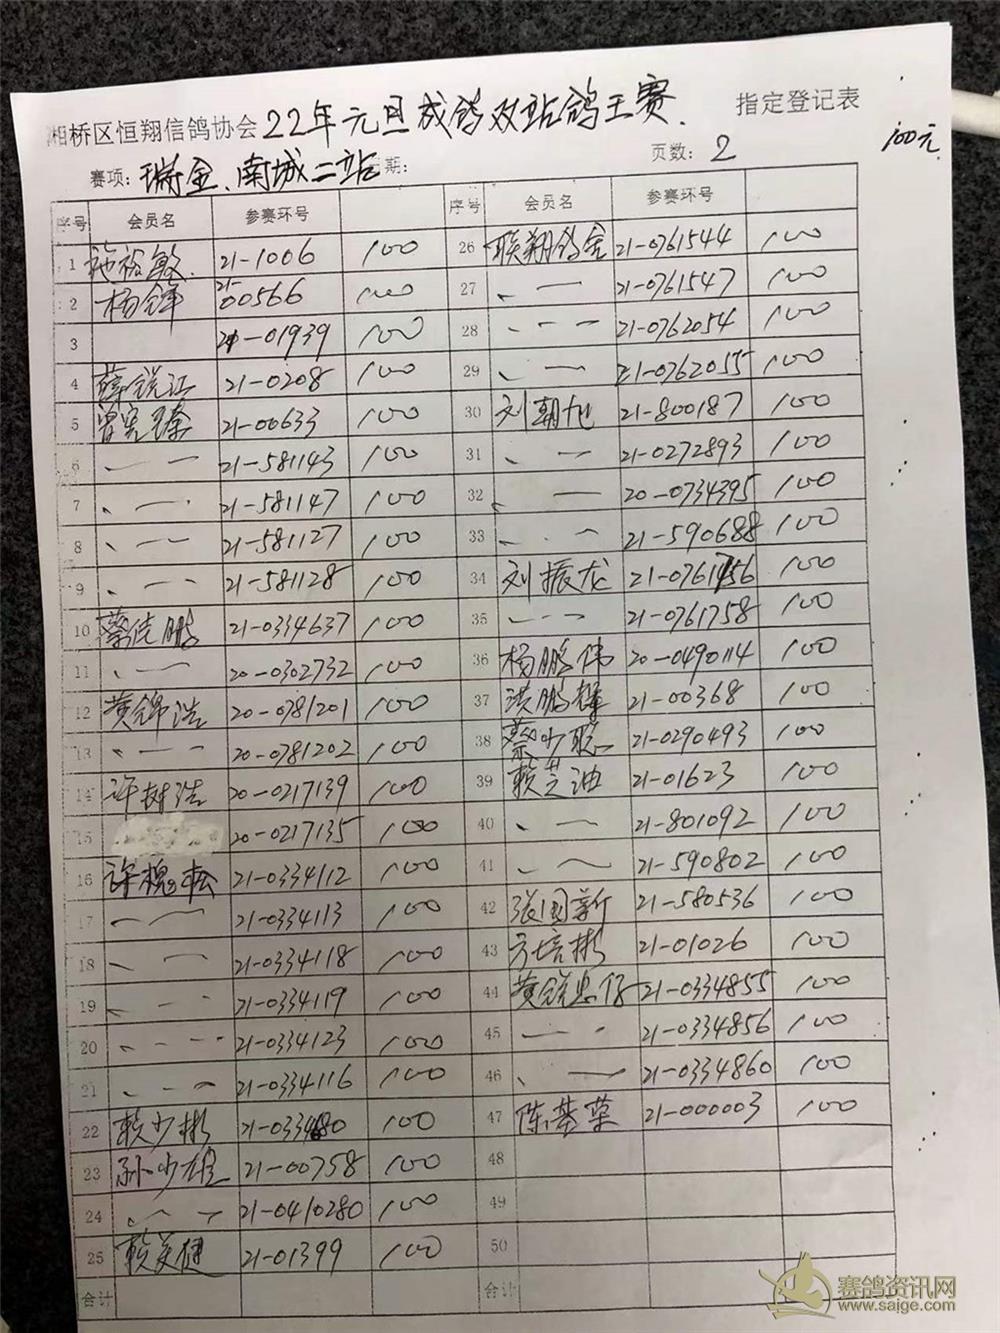 湘桥区恒翔信鸽协会22年元旦成鸽双站鸽王赛. 指定登记表
100元
赛项: 瑞金、南城二站 日期: 页数: 2
序号 会员名 参赛环号 序号 会员名 参赛环号
1 21-1006 100 26 联翔鸽舍 21-0761544 100
2 杨锋 21-00566 100 27 、一 21-0761547 100
3 21-01939 100 28 、-- 21-0762054 100
4 薛锐江 21-0208 100 29 、一 21-0762055 100
5 曾宪臻 21-00633 100 30 刘朝旭 21-800187 100
6 、一 21-581143 100 31 、一 21-0272893 100
7 、一 21-581147 100 32 、一 20-0734395 100
8 、一 21-581127 100 33 、-- 21-590688 100
9 、一 21-581128 100 34 刘振龙 21-0761756 100
10 蔡佳鹏 21-0334637 100 35 、-- 21-0761758 100
11 、一 20-0302732 100 36 杨鹏伟 20-0490114 100
12 黄锦浩 20-0781201 100 37 洪鹏辉 21-00368 100
13 、一 20-0781202 100 38 蔡少聪 21-0290493 100
14 许树浩 20-0217139 100 39 赖芝油 21-01623 100
15 20-0217135 100 40 、一 21-801092 100
16 许槐松 21-0334112 100 41 、一 21-590802 100
17 、一 21-0334113 100 42 张国新 21-580536 100
18 、一 21-0334118 100 43 方培彬 21-01026 100
19 、一 21-0334119 100 44 黄锐忠仔 21-0334855 100
20 、-- 21-0334123 100 45 、-- 21-0334856 100
21 、-- 21-0334116 100 46 、一 21-0334860 100
22 赖少彬 100 47 陈基荣 21-000003 100
23 孙少雄 21-00758 100 48
24 、一 21-0410280 100 49
25 赖英健 21-01399 100 50
合计 合计
赛鸽资讯网
www.saige.com